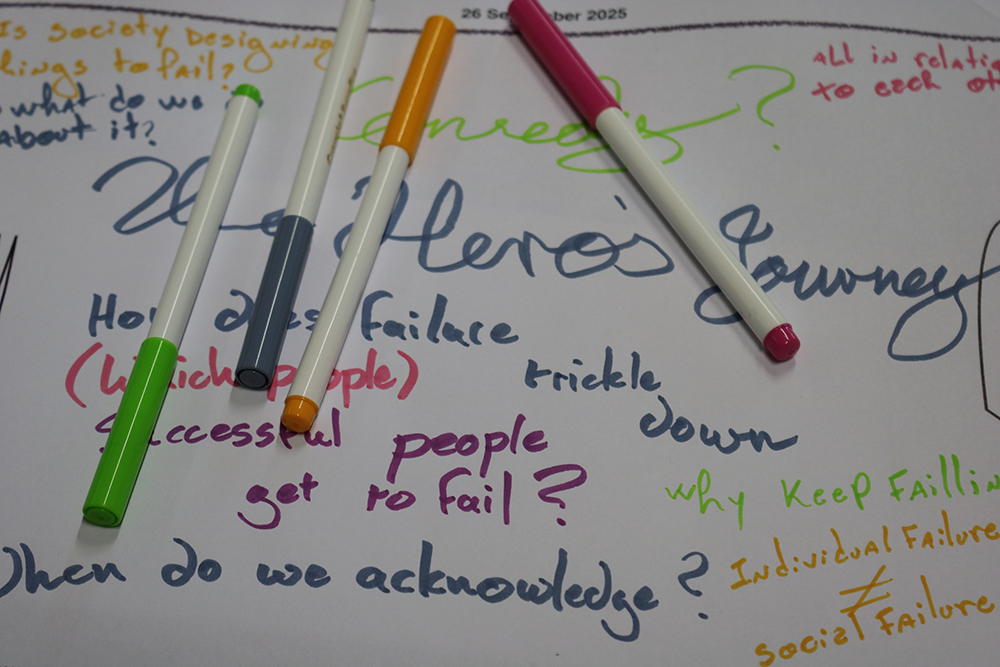 26 September 2025
Is Society Designing
to fail?
what do we
about it?
?
All in
to each
The Hero's Journey
How does Failure
trickle
down
(Which people)
Successful people
get to fail?
Why KEEP
When do we acknowledge?
Individual Failure
≠
Social Failure